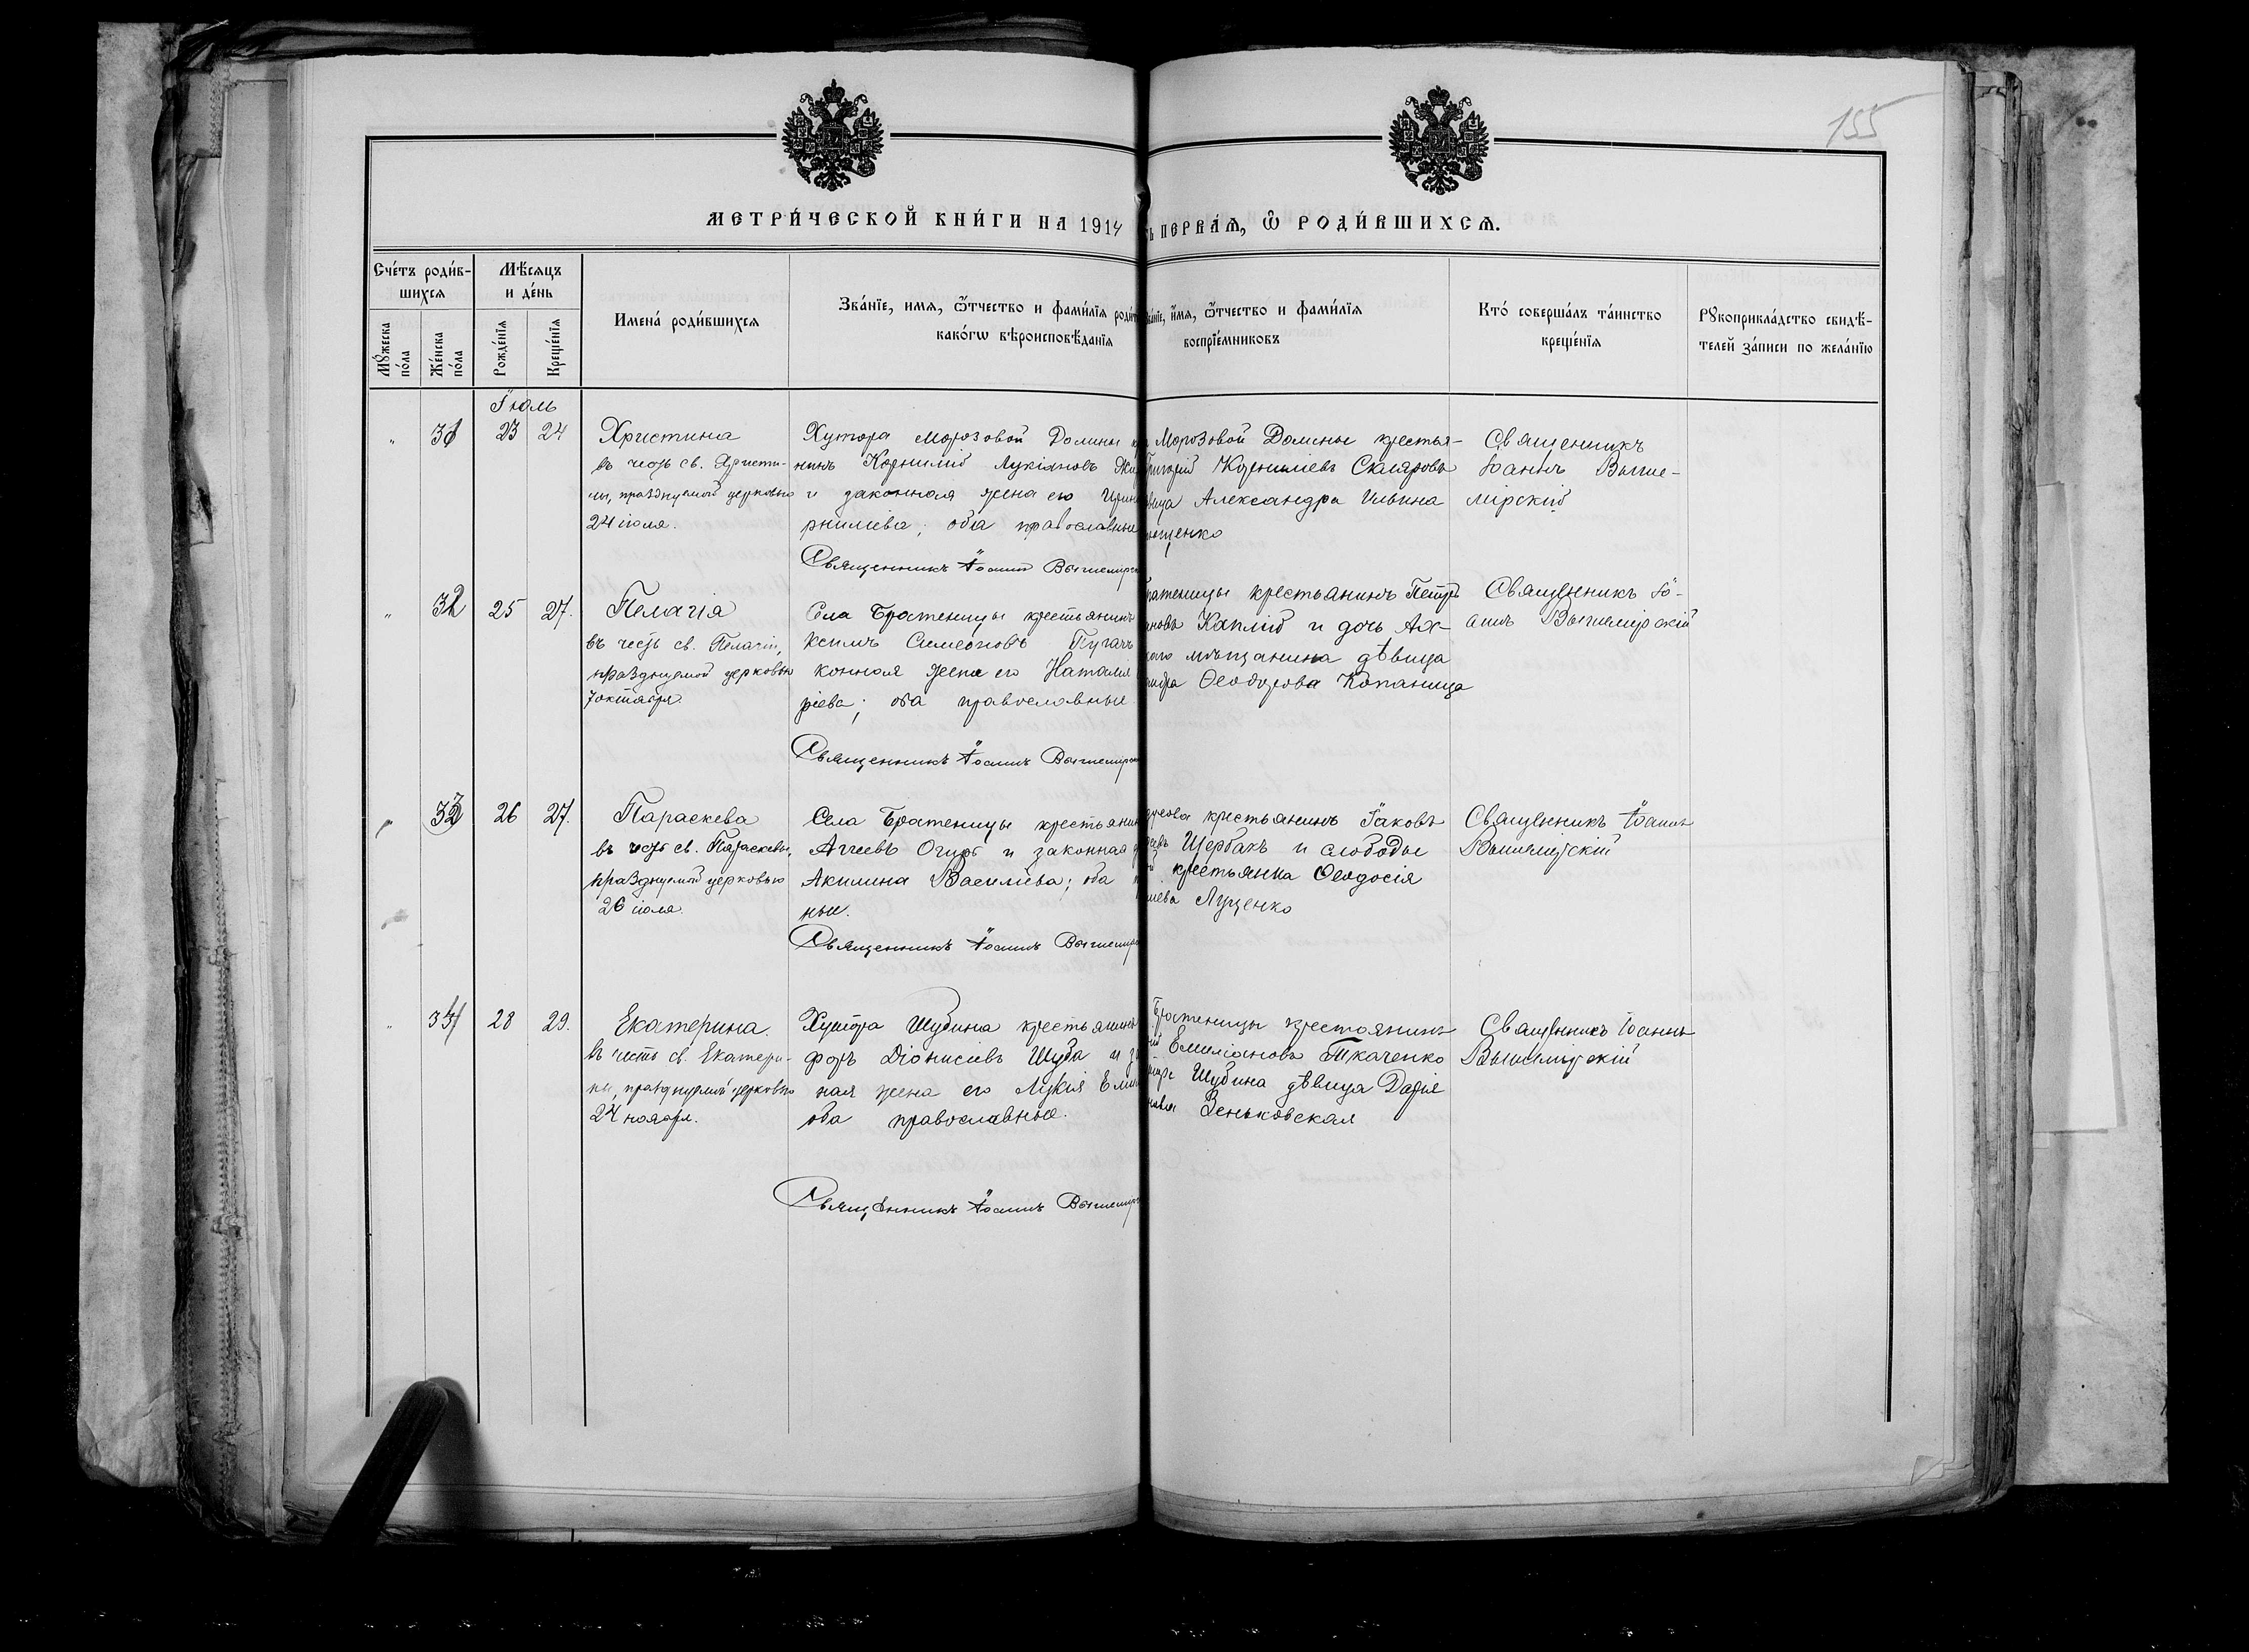 155
МЕТРИ́ЧЕСКОЙ КНИ́ГИ НА 1914
ПЕРВАѦ, Ѿ РОДИ́ВШИХСѦ.
Сче́тъ роди́в-
шихсѧ
Мѣ́сѧцъ
и де́нь
Имена́ роди́вшихсѧ
Зва́нїе, имѧ, ѻ҆́тчество и фами́лїѧ
како́гѡ вѣроисповѣ́данїѧ
и҆́мѧ, ѻ҆́тчество и фами́лїѧ
воспрїе́мниковъ
Кто́ соверша́лъ та́инство
креще́нїѧ
Рꙋкоприкла́дство свидѣ́-
телей за́писи по жела́нїю
Мꙋ́жеска
по́ла
Же́нска
по́ла
Рожде́нїѧ
Креще́нїѧ
Іюль
" 31 23 24
Христина
въ честь св. Христи-
ны, празднуемой церковью
24 іюля.
Хутора Морозовой Долины
нинъ Корнилій Лукіановъ
и законная жена его
рниліева; оба православные
Священникъ Іоаннъ
Морозовой Долины крестья-
Григорій Корниліевъ Скляровъ
Александра Ильина
Священникъ
Іоаннъ Выше-
мірскій
" 32 25 27.
Пелагія
въ честь св. Пелагіи,
празднуемой церковью
7 октября.
Села Братеницы крестьянинъ
ксимъ Симеоновъ Пугачъ
конная жена его Наталія
ріева; оба православные
Священникъ Іоаннъ
крестьянинъ Петръ
Каплій и дочь Ах-
мѣщанина дѣвица
Ѳеодорова Копаница
Священникъ Іо-
аннъ Вышемірскій
33 26 27.
Параскева
въ честь св. Параскевы,
празднуемой церковью
26 іюля.
Села Братеницы крестьянин
Аггеевъ Огирь и законная
Акилина Васильева; оба
ные.
Священникъ Іоаннъ
крестьянинъ Іаковъ
Щербакъ и слободы
крестьянка Ѳеодосія
Луценко
Священникъ Іоаннъ
Вышемірскій
" 34 28 29.
Екатерина.
въ честь св. Екатери-
ны, празднуемой церковью
24 ноября.
Хутора Шубина крестьянинъ
форъ Діонисіевъ Шуба и
ная жена его Лукія
оба православные.
Священникъ Іоаннъ
Братеницы крестьянинъ
Емиліановъ Ткаченко
Шубина дѣвица Дарія
Зеньковская
Священникъ Іоаннъ
Вышемірскій